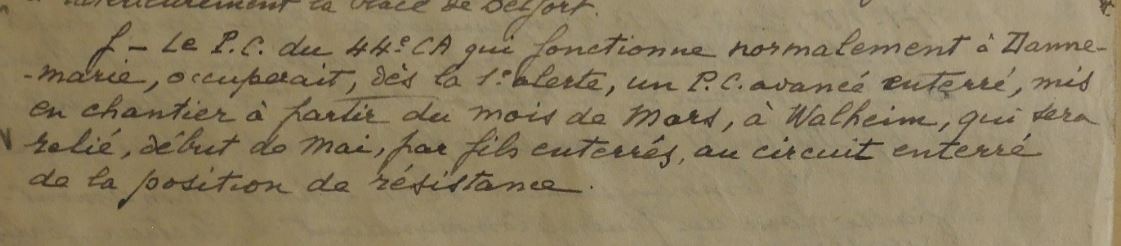 intérieurement la place de Belfort.
f - Le P.C. du 44e CA qui fonctionne normalement à Danne-
-marie, occuperait, dès la 1e alerte, un P.C. avancé enterré, mis
en chantier à partir du mois de Mars, à Walheim, qui sera
relié, début de Mai, par fils enterrés, au circuit enterré
de la position de résistance.